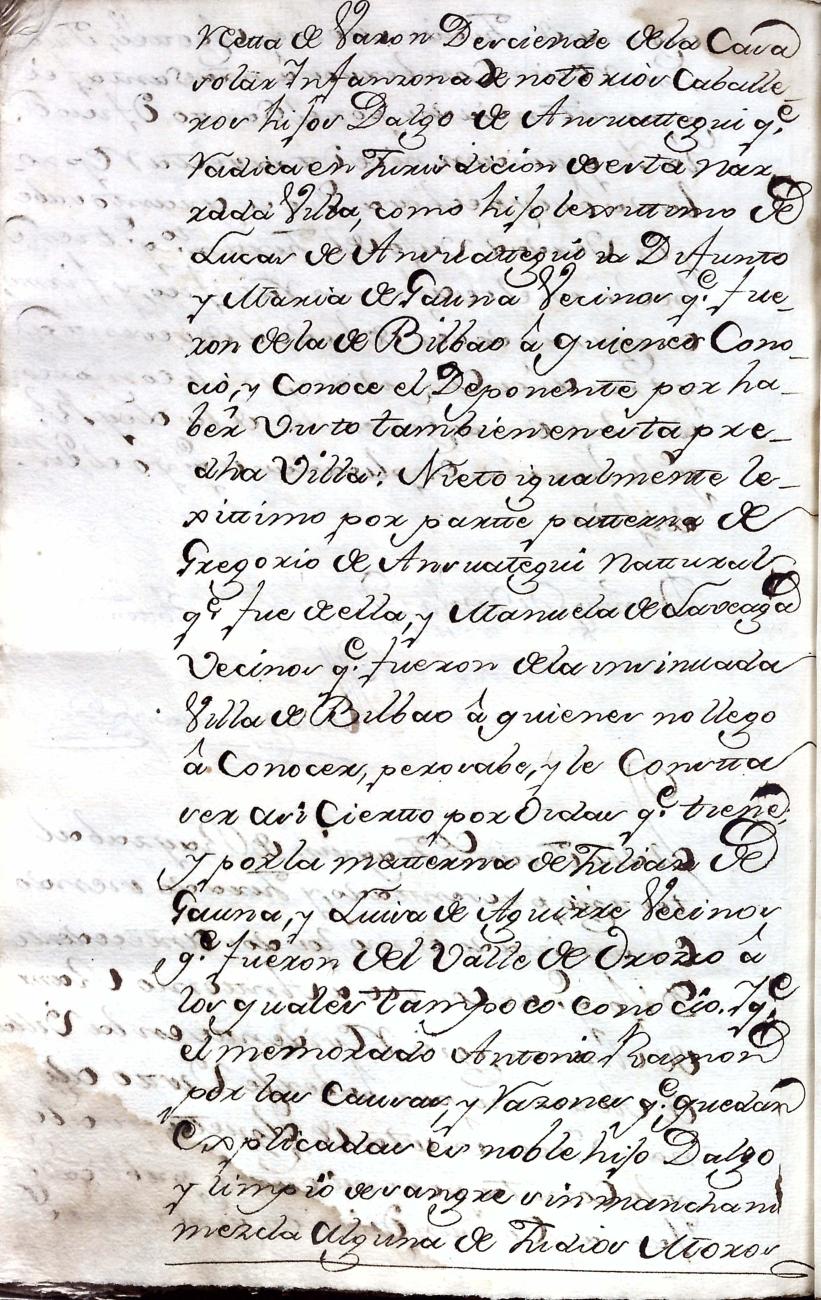 Recta de Varon Desciende dela Casa
solar Infanzona de notorios Caballe-
ros hijos Dalgo de Ansuattegui q.e
Radica en Jurisdicion de esta nar-
rada Villa, como hijo lexittimo de
Lucas de Ansuattegui ia Difunto
y Maria de Gauna Vecinos q.e fue-
ron dela de Bilbao â quienes Cono-
ció, y Conoce el Deponente por ha-
ber Visto tambien en esta pre-
dha Villa: Nieto igualmente le-
xittimo por partte patterna de
Gregorio de Ansuategui Nattural
q.e fue de ella, y Manuela de Laveaga
Vecinos q.e fueron dela insinuada
Villa de Bilbao â quienes no llego
â Conocer, pero sabe, y le Constta
ser asi Ciertto por Oidas q.e tiene,
y por la matterna de Julian de
Gauna, y Luisa de Aguirre Vecinos
q.e fueron del Valle de Orozco â
los quales tampoco conocio. Y q.e
el memorado Antonio Ramon
por las Causas, y Razones q.e quedan
Explicadas es noble hijo Dalgo
y limpio de sangre sin mancha ni
mezcla Alguna de Judios Moros